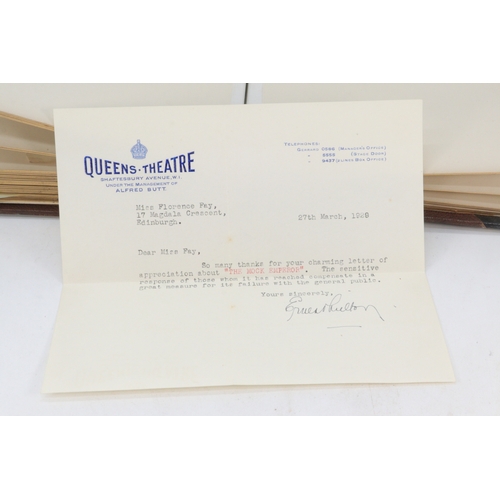 QUEENS·THEATRE
SHAFTESBURY AVENUE, W.1.
UNDER THE MANAGEMENT OF
ALFRED BUTT
TELEPHONES:
(MANAGER'S OFFICE)
(STAGE DOOR)
(BOX OFFICE)
Miss Florence Fay,
17 Magdala Crescent,
Edinburgh.
27th March, 1928
Dear Miss Fay,
So many thanks for your charming letter of
appreciation about "THE MOCK EMPEROR". The sensitive
response of those whom it has reached compensates in a
great measure for its failure with the general public.
Yours sincerely,